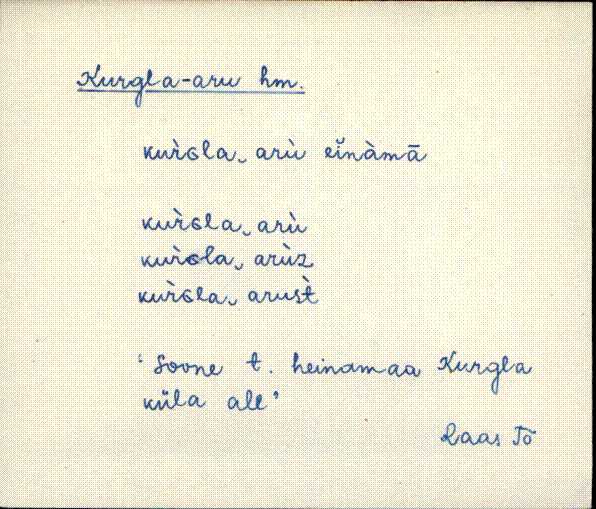 Kurgla-aru hm.
kur̀ɢla‿ arù eĭnàmā
kur̀ɢla‿ arù
kur̀ɢla‿ arùz
kur̀ɢla‿ arust̀
‘Soone t. heinamaa Kurgla
küla all’
Raas Tõ